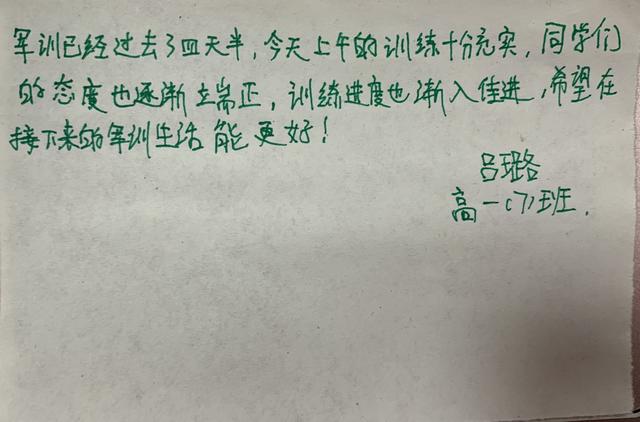 军训已经过去了四天半,今天上午的训练十分充实,同学们
的态度也逐渐立端正,训练进度也渐入佳进,希望在
接下来的军训生活能更好!
吕璐
高一(7)班.